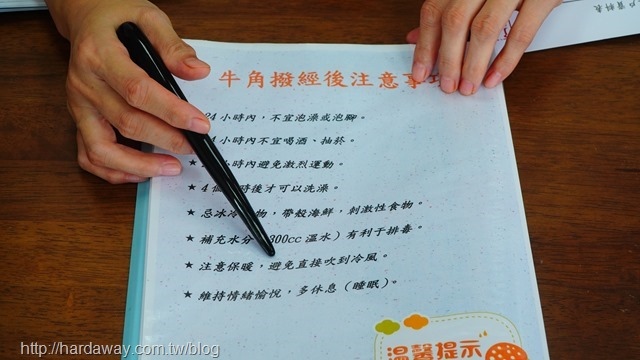 戶資料表
牛角撥經後注意事
24小時內，不宜泡澡或泡腳。
4小時內不宜喝酒、抽菸。
★ 小時內避免激烈運動。
★ 4個 時後才可以洗澡。
★ 忌冰冷 物，帶殼海鮮，刺激性食物。
★ 補充水分 300cc溫水）有利于排毒。
★ 注意保暖，避免直接吹到冷風。
★ 維持情緒愉悅，多休息（睡眠）。
溫馨提示
http://hardaway.com.tw/blog